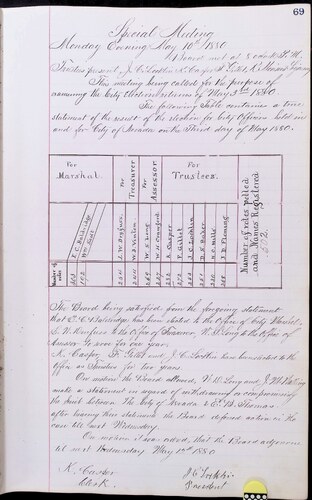 69
Special Meeting
Monday Evening May 10th 1880
Board met at 8 oclock P. M.
Trustees present, J. C. Locklin K. Casper F. Gillet,
This meeting being called for the purpose of
canvassing the City Election returns of May 3rd 1880.
The following Table contains a true
statement of the result of the election for City Officers held in
and for City of Nevada on the Third day of May 1880.
For Marshal
For Treasurer
For Assessor
For Trustees
Number of votes polled and Names Registered
W. D. Vinton
W. S. Long
W. E. Crawford
K. Casper
F. Gillet
J. C. Locklin
D. E. Baker
Fleming
Number of votes
The Board being satisfied from the foregoing statement
that E. C. Baldridge has been elected to the Office of City Marshal,
to the Office of Treasurer, W. S. Long to the Office of
Assessor to serve for one year.
K. Casper F. Gillet and J. C. Locklin have been elected to the
office as Trustees for two years
On motion the Board allowed, W. D. Long and J. M. Walling
make a statement in regard of withdrawing or compromising
the suit between The City of Nevada & Thomas
after hearing their statement the Board defered action in the
case till next Wednesday.
On motion it was ordered, that the Board adjourn
till next Wednesday May 12th 1880
K. Casper
Clerk.
J. C. Locklin
President